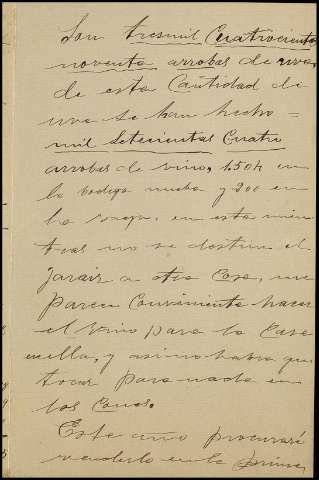 Son tresmil Cuatrocientas
noventa arrobas de uva,
de esta Cantidad de
uva se han hecho =
mil Setecientas Cuatro
arrobas de vino, 1.504 en
la bodega nueba y 200 en
la vieja, en esta mien
tras no se destine el
Jarais a otra Cosa, me
parece Conveniente hacer
el vino para la Casa
en ella, y asi no habra que
tocar para nada en
los Conos.
Este año procuraré
venderlo en la prima